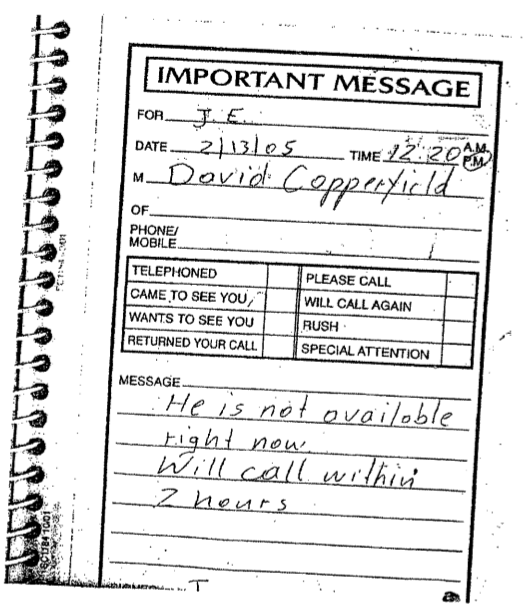 IMPORTANT MESSAGE
FOR J. E.
DATE 2/13/05 TIME 12:20 A.M. P.M.
M David Copperfield
OF
PHONE/
MOBILE
TELEPHONED PLEASE CALL
CAME TO SEE YOU WILL CALL AGAIN
WANTS TO SEE YOU RUSH
RETURNED YOUR CALL SPECIAL ATTENTION
MESSAGE
He is not available
right now.
Will call within
2 hours